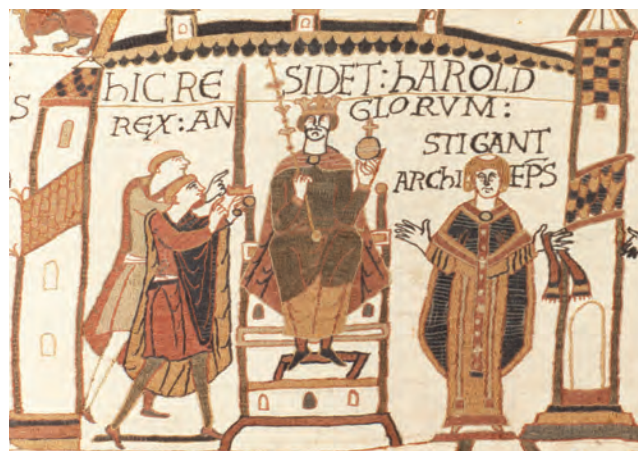 S
hIC RE SIDET: hAROLD
REX: AN GLORVM:
STIGANT
ARChI EP̄S